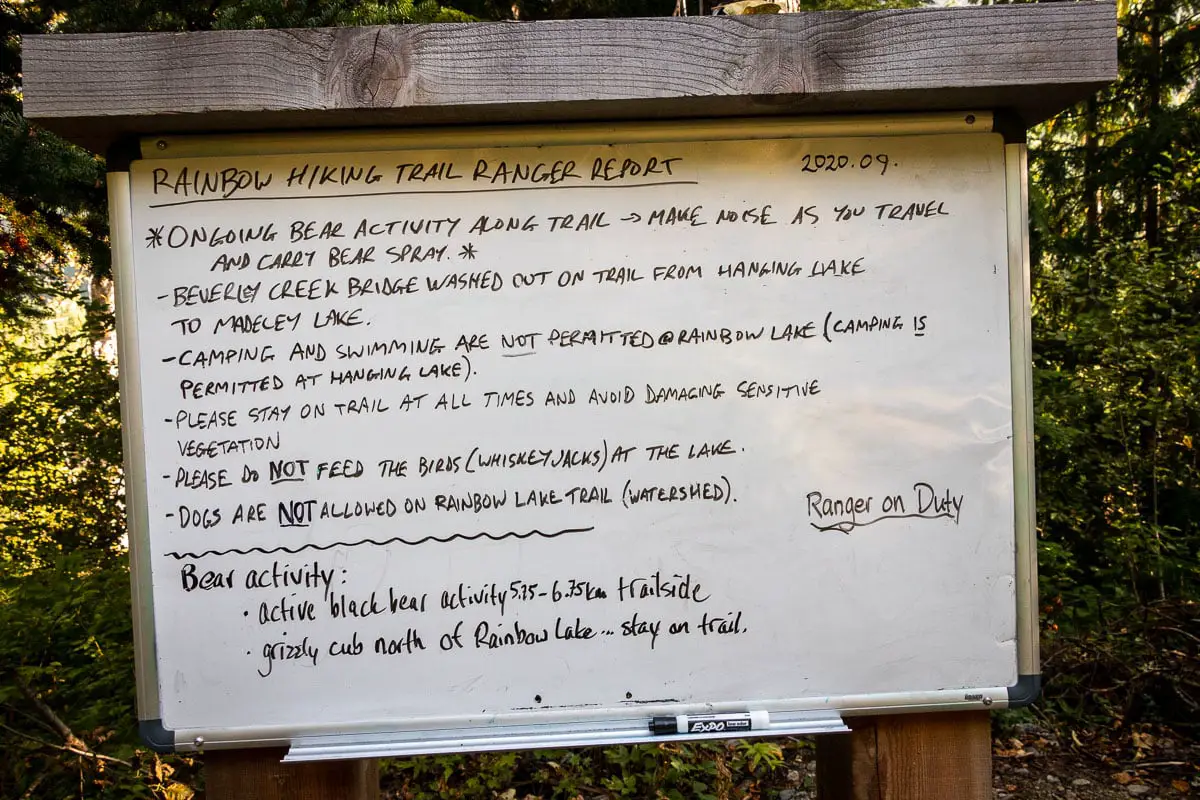 RAINBOW HIKING TRAIL RANGER REPORT 2020.09.
*ONGOING BEAR ACTIVITY ALONG TRAIL → MAKE NOISE AS YOU TRAVEL
AND CARRY BEAR SPRAY. *
- BEVERLEY CREEK BRIDGE WASHED OUT ON TRAIL FROM HANGING LAKE
TO MADELEY LAKE.
- CAMPING AND SWIMMING ARE NOT PERMITTED @ RAINBOW LAKE (CAMPING IS
PERMITTED AT HANGING LAKE).
- PLEASE STAY ON TRAIL AT ALL TIMES AND AVOID DAMAGING SENSITIVE
VEGETATION
- PLEASE DO NOT FEED THE BIRDS (WHISKEYJACKS) AT THE LAKE.
- DOGS ARE NOT ALLOWED ON RAINBOW LAKE TRAIL (WATERSHED).
Ranger on Duty
Bear activity:
• active black bear activity 5.75-6.75km trailside
• grizzly cub north of Rainbow Lake... stay on trail.
EXPO